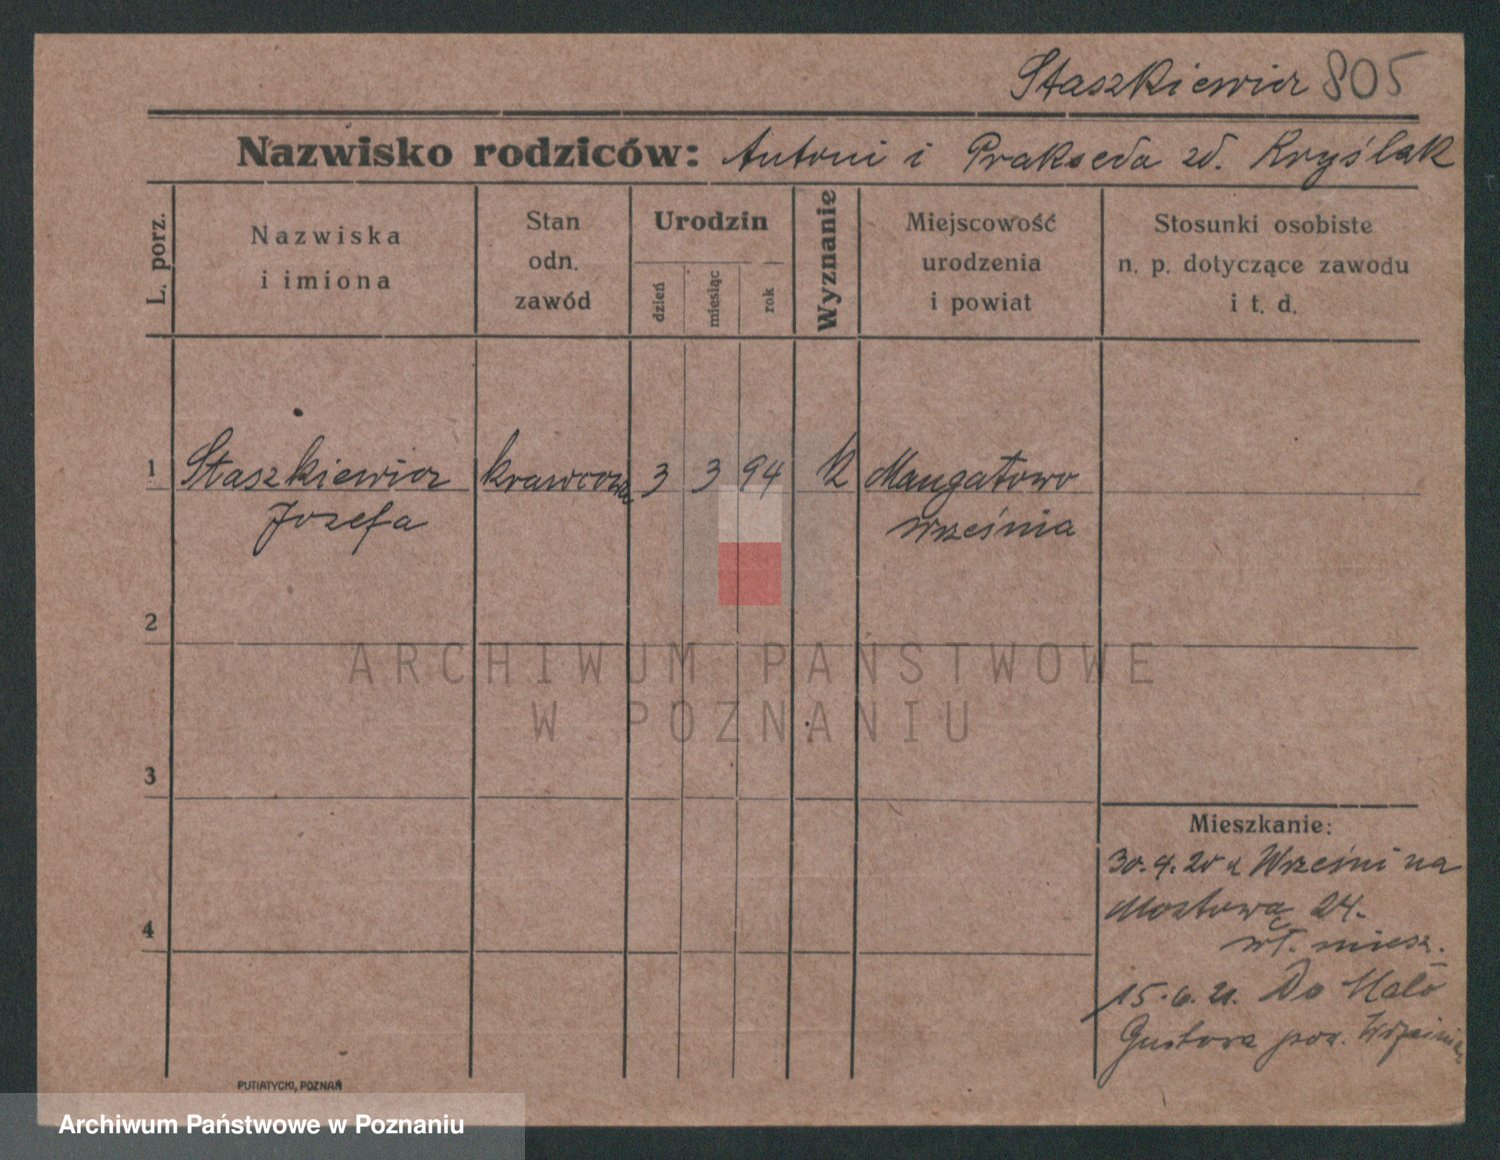 Staszkiewicz 805
Nazwisko rodziców: Antoni i Prakseda zd. Kryślak
L. porz.
Nazwiska
i imiona
Stan
odn.
zawód
Urodzin
dzień
miesiąc
rok
Wyznanie
Miejscowość
urodzenia
i powiat
Stosunki osobiste
n. p. dotyczące zawodu
i t. d.
1 Staszkiewicz krawcowa 3 3 94 k Mangatowo
Józefa września
2
3
4
ARCHIWUM PAŃSTWOWE
W POZNANIU
Mieszkanie:
30.4.20 z Wrześni na
Mostową 24.
wł. miesz.
15.6.21. Do
pow. Września
PUTIATYCKI, POZNAŃ
Archiwum Państwowe w Poznaniu